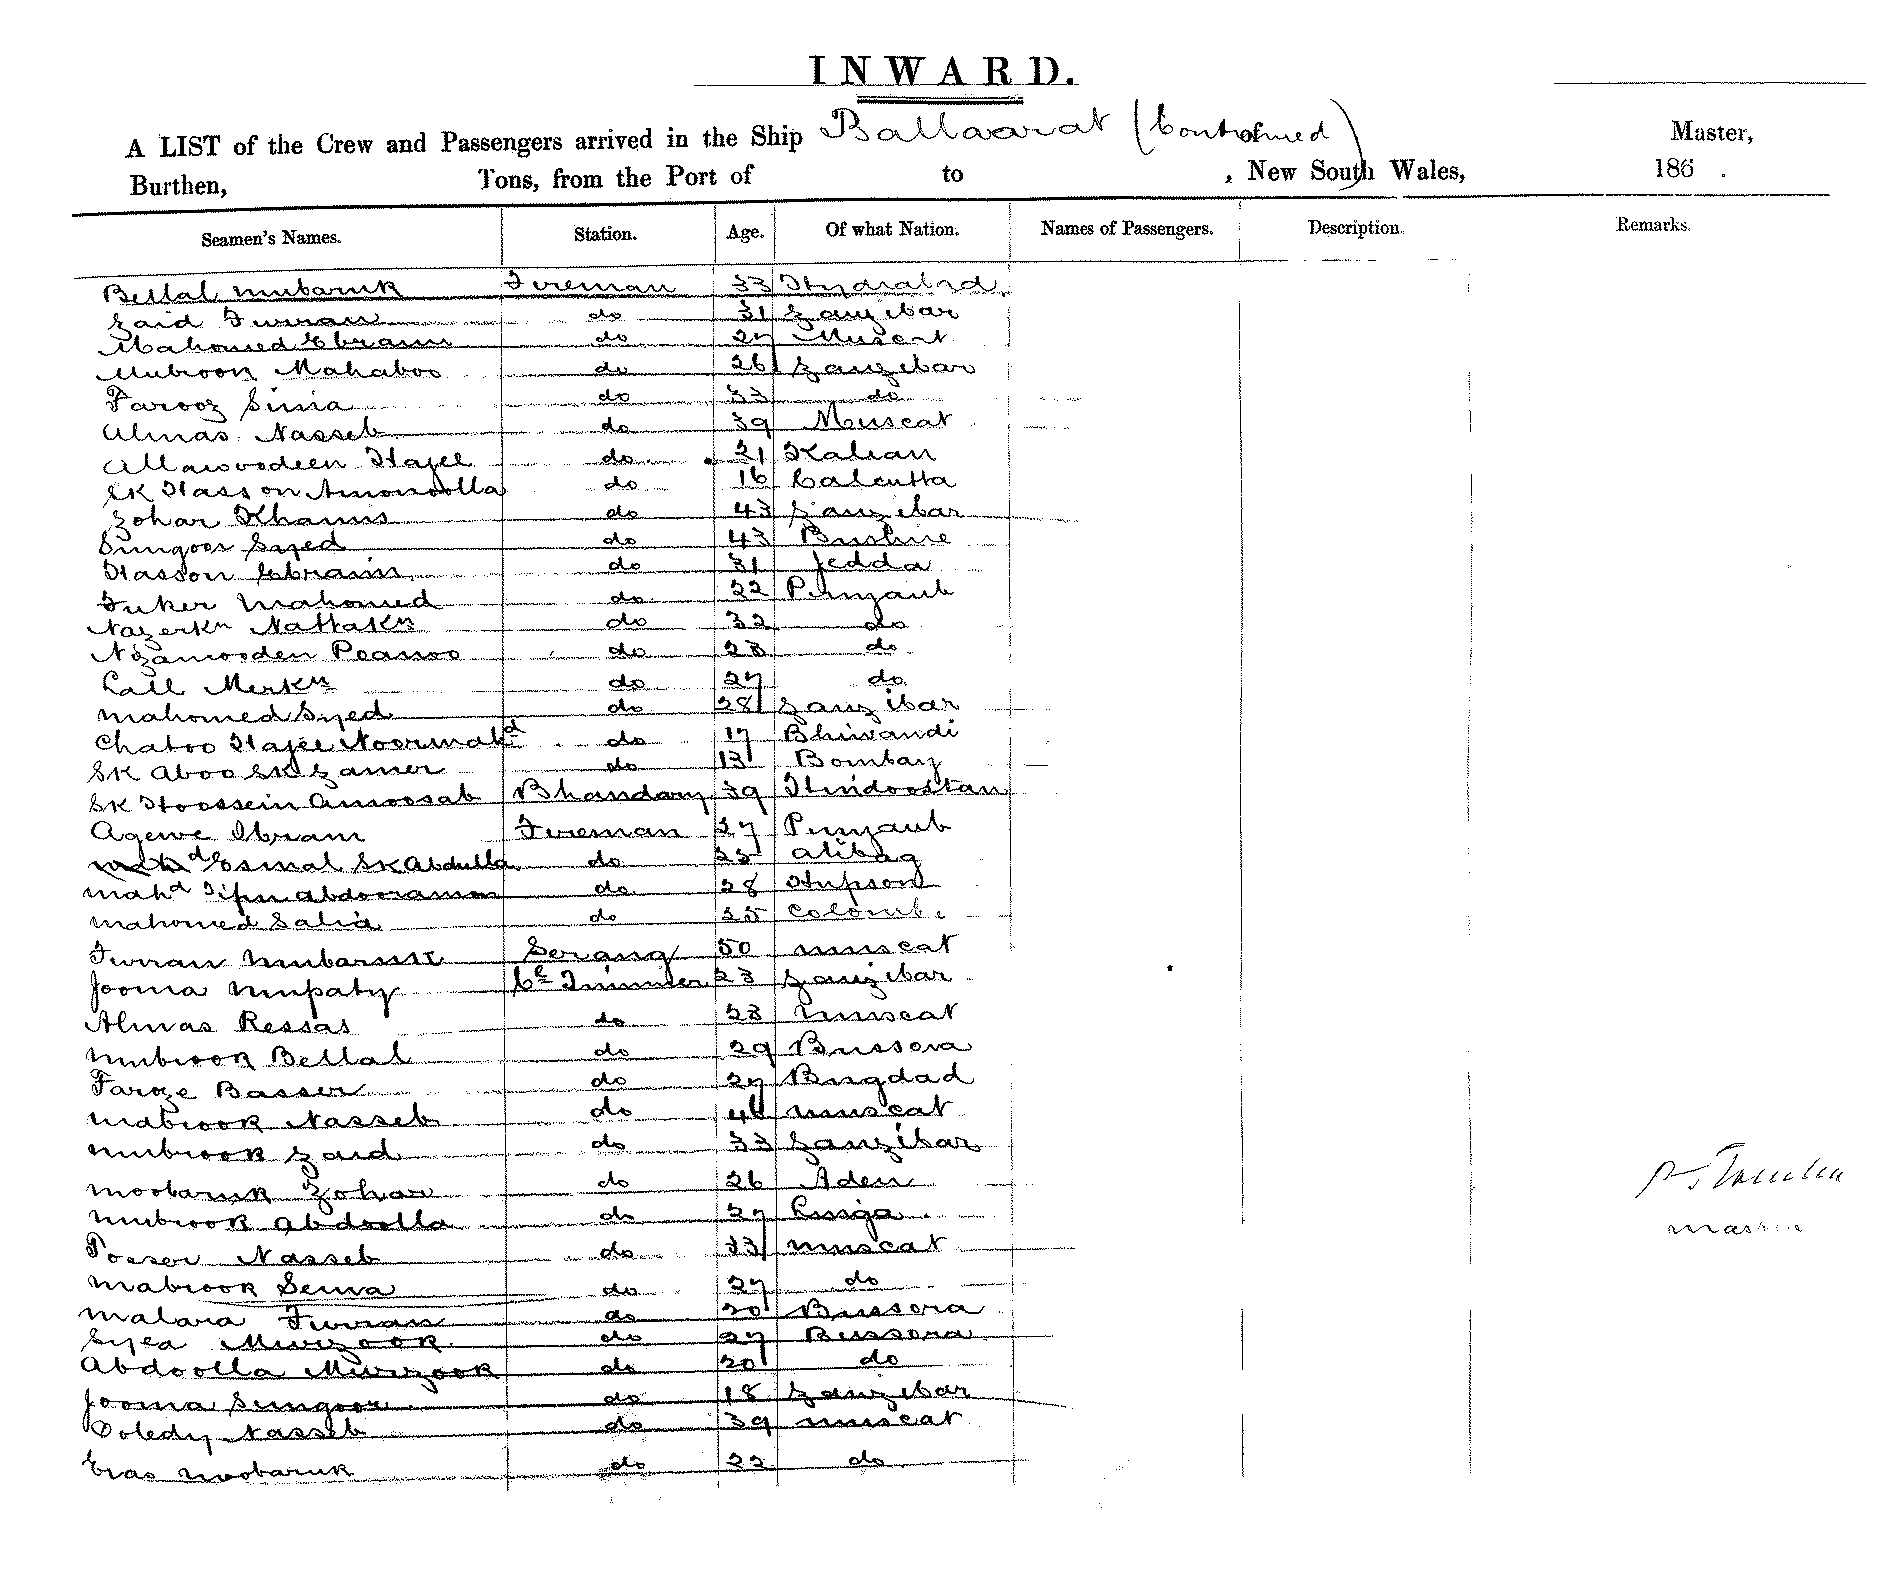 INWARD.
A LIST of the Crew and Passengers arrived in the Ship Ballaarat (Continued) Master,
Burthen, Tons, from the Port of to , New South Wales, 186 .
Seamen's Names. Station. Age. Of what Nation. Names of Passengers. Description. Remarks.
Bellal Mubaruk Fireman 33 Hydrabad
Zaid Furran do 31 Zanzibar
Mahomed Ebraim do 27 Muscat
Mubrook Mahaboo do 26 Zanzibar
Farooz Sinia do 33 do
Almas Nasseb do 39 Muscat
Allawoodeen Hajee do 21 Kalian
SK Hasson Amonoolla do 16 Calcutta
Zohar Khamis do 43 Zanzibar
Sungoor Syed do 43 Bushire
Hasson Ebraim do 31 Jedda
Fuker Mahomed do 22 Punjaub
Nazerkn Nattakn do 32 do
Nizamooden Peamoo do 28 do
Lall Merkn do 27 do
Mahomed Syed do 28 Zanzibar
Chatoo Hajee Noormahd do 17 Bhiwandi
SK Aboo SK Zamer do 13 Bombay
SK Hoossein Amoosab Bhandary 39 Hindoostan
Agewe Ibram Fireman 27 Punjaub
Esmal SK Abdulla do 25 Alibag
Mahd Abdooraman do 28
Mahomed Salia do 25 Colombo
Furran Mubaruk Serang 50 Muscat
Jooma Mupaty Cl Trimmer 23 Zanzibar
Almas Ressas do 28 Muscat
Mubrook Bellal do 29 Bussora
Faroze Basser do 27 Bugdad
Mabrook Nasseb do 46 Muscat
Mubrook Zaid do 33 Zanzibar
Moobaruk Zohar do 26 Aden
Mubrook Abdoolla do 27 Linga
Nasseb do 33 Muscat
Mabrook Sewa do 27 do
Malara Furran do 20 Bussora
Syea Murzook do 27 Bussora
Abdoolla Murzook do 20 do
Jooma Sungoor do 18 Zanzibar
Doledy Nasseb do 39 Muscat
Moobaruk do 22 do
Master